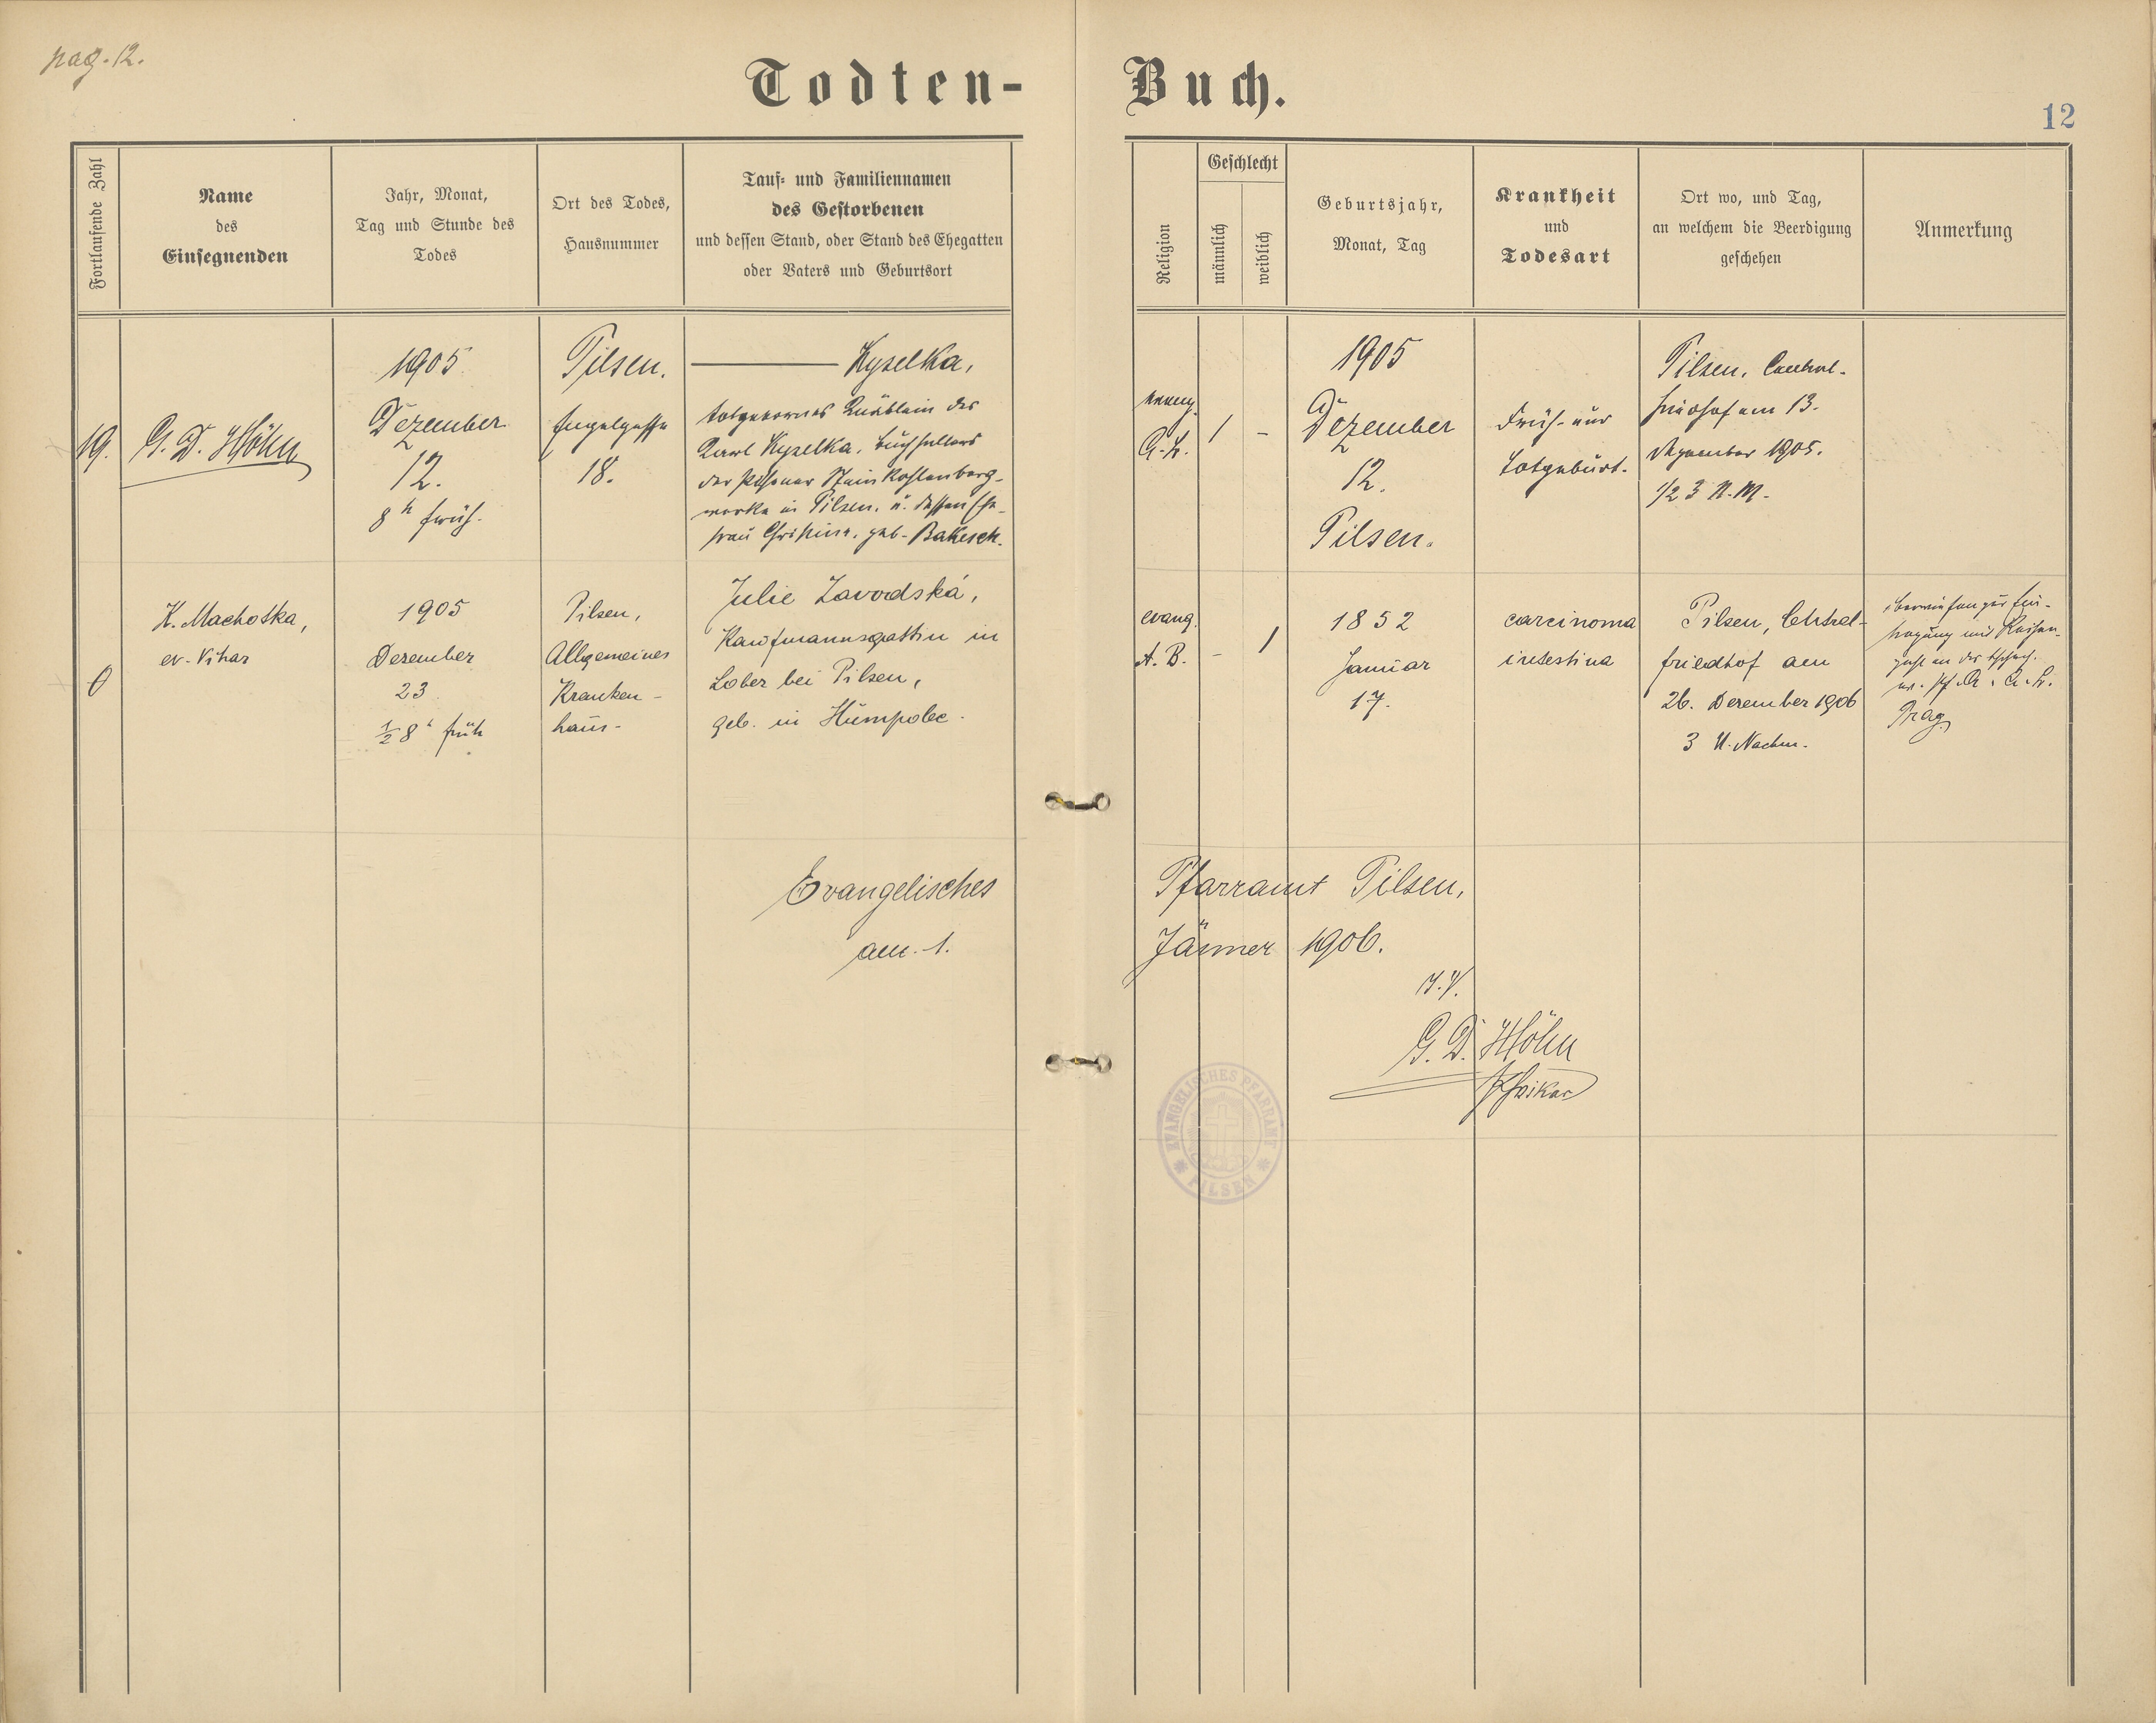 pag. 12.
Todten-Buch.
12
Fortlaufende Zahl
Name
des
Einsegnenden
Jahr, Monat,
Tag und Stunde des
Todes
Ort des Todes,
Hausnummer
Tauf- und Familiennamen
des Gestorbenen
und dessen Stand, oder Stand des Ehegatten
oder Vaters und Geburtsort
Religion
Geschlecht
männlich
weiblich
Geburtsjahr,
Monat, Tag
Krankheit
und
Todesart
Ort wo, und Tag,
an welchem die Beerdigung
geschehen
Anmerkung
19.
G. D. Höhn
1905
Dezember
12.
8 h früh.
Pilsen.
Engelgasse
18.
Kyselka,
totgebornes Knäblein des
Karl Kyselka, Buchhalters
der Pilsener Steinkohlenberg-
werke in Pilsen, u. dessen Ehe-
frau Christine, geb. Bakesch.
evang.
A. B.
1
-
1905
Dezember
12.
Pilsen.
Früh- und
Totgeburt.
Pilsen, Central-
friedhof am 13.
Dezember 1905.
1/2 3 N. M.
0
K. Machotka,
ev. Vikar
1905
Dezember
23
1/2 8 h früh
Pilsen,
Allgemeines
Kranken-
haus-
Julie Zavodská,
Kaufmannsgattin in
Lober bei Pilsen,
geb. in Humpolec.
evang.
A. B.
-
1
1852
Januar
17.
carcinoma
intestina
Pilsen, Central-
friedhof am
26. Dezember 1906
3 U. Nachm.
überwiesen zur Ein-
tragung und Reihen-
zahl an das tschech.
ev. Pf. A. A. B.
Prag.
Evangelisches Pfarramt Pilsen,
am 1. Jänner 1906.
I. V.
G. D. Höhn
Pfvikar
EVANGELISCHES PFARRAMT
* PILSEN *